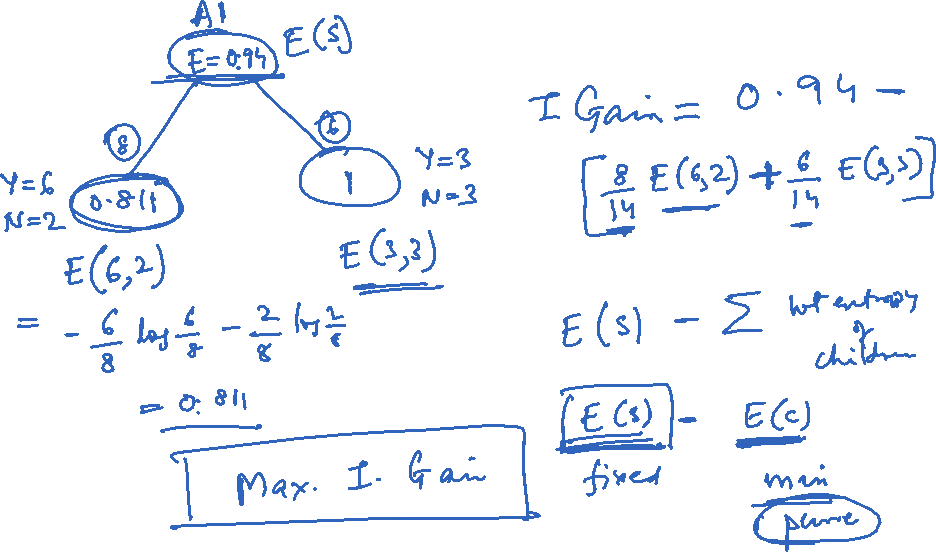 A1
E = 0.94 E(S)
8 6
Y=6 0.811 1 Y=3
N=2 N=3
E(6,2) E(3,3)
= - 6/8 log 6/8 - 2/8 log 2/8
= 0.811
Max. I. Gain
I Gain = 0.94 -
[8/14 E(6,2) + 6/14 E(3,3)]
E(S) - Σ wt entropy
of
children
E(S) - E(c)
fixed min
pure